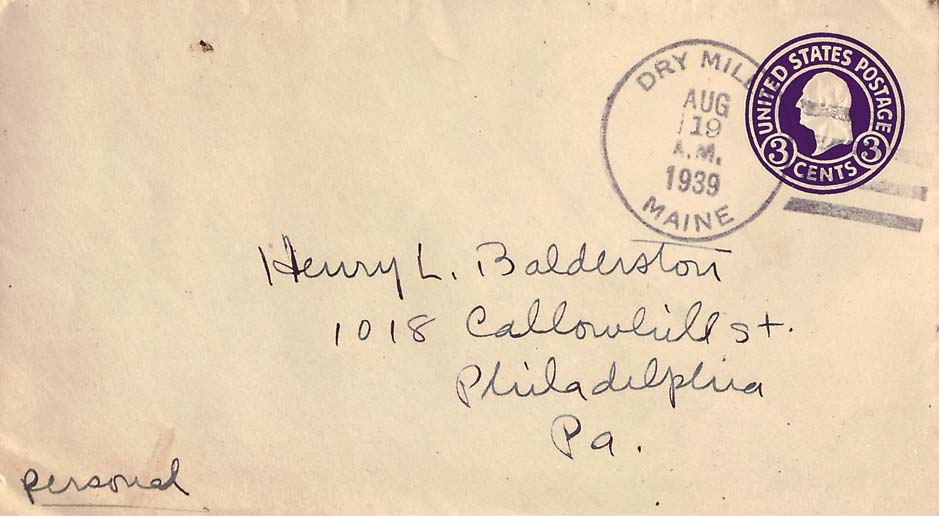 DRY MILL
AUG
19
A.M.
1939
MAINE
UNITED STATES POSTAGE
3 CENTS 3
Henry L. Balderston
1018 Callowhill St.
Philadelphia
Pa.
personal